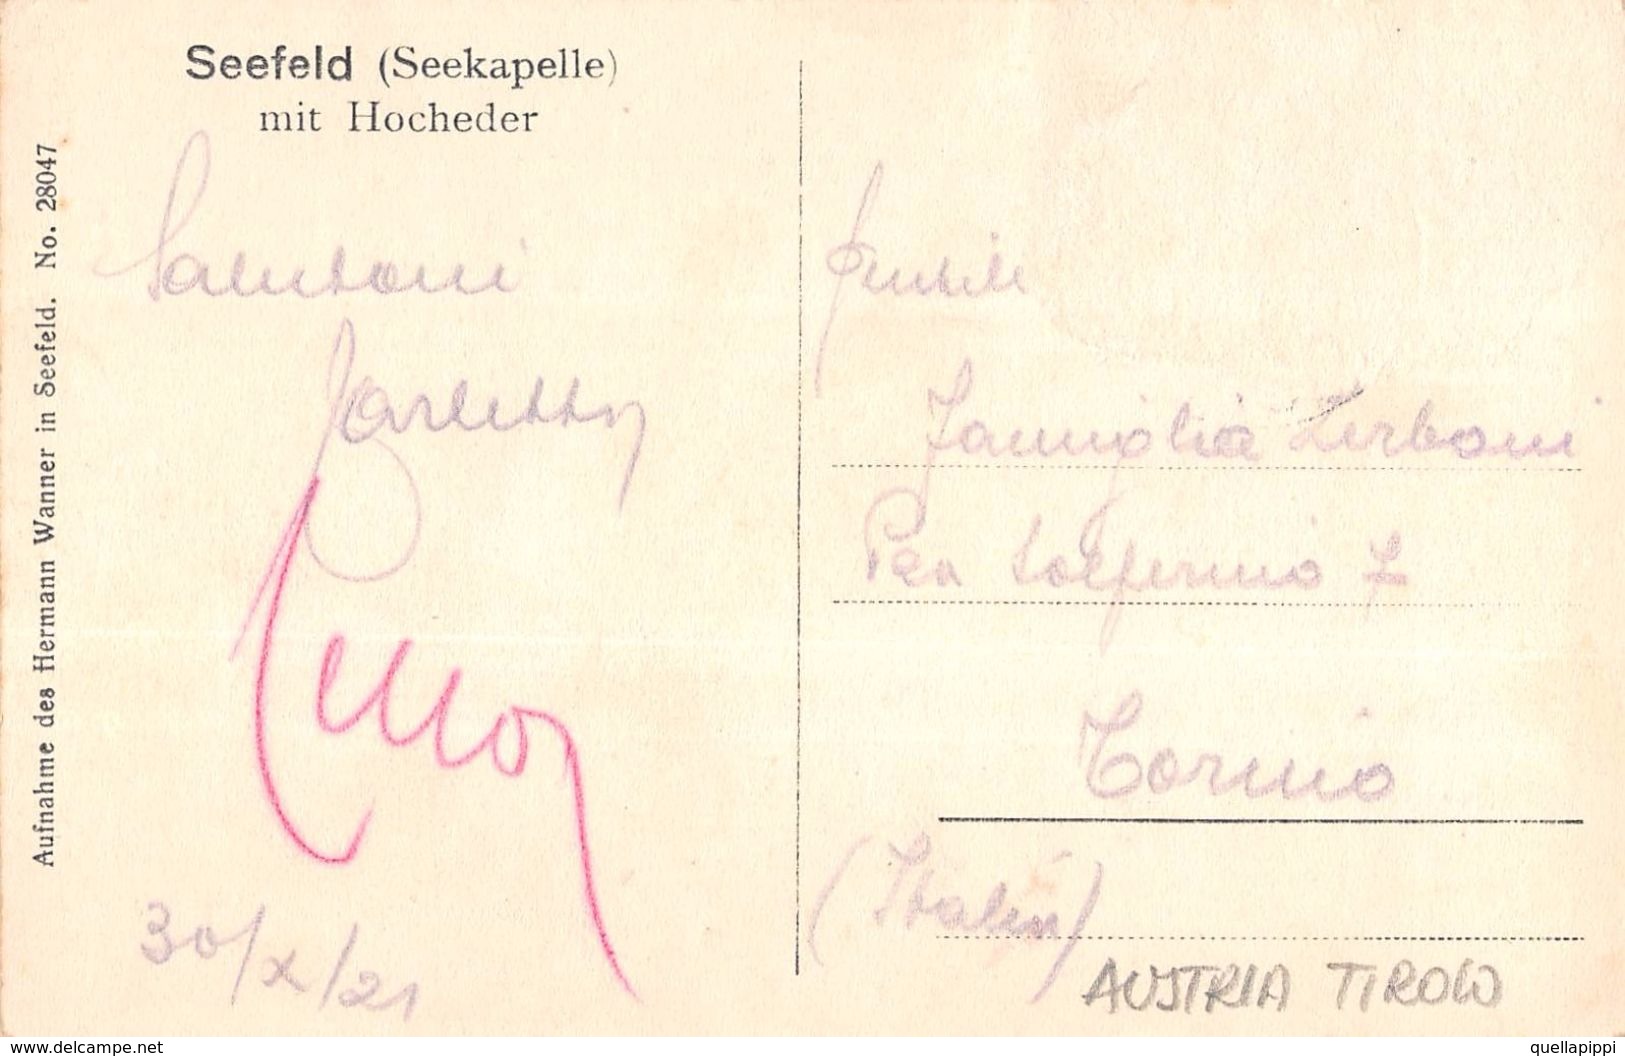 Seefeld (Seekapelle)
mit Hocheder
Aufnahme des Hermann Wanner in Seefeld. No. 28047
Salutoni
30/X/21
Gentile
Famiglia Zerboni
Via Solferino 7
Torino
(Italien)
AUSTRIA TIROLO
www.delcampe.net
quellapippi